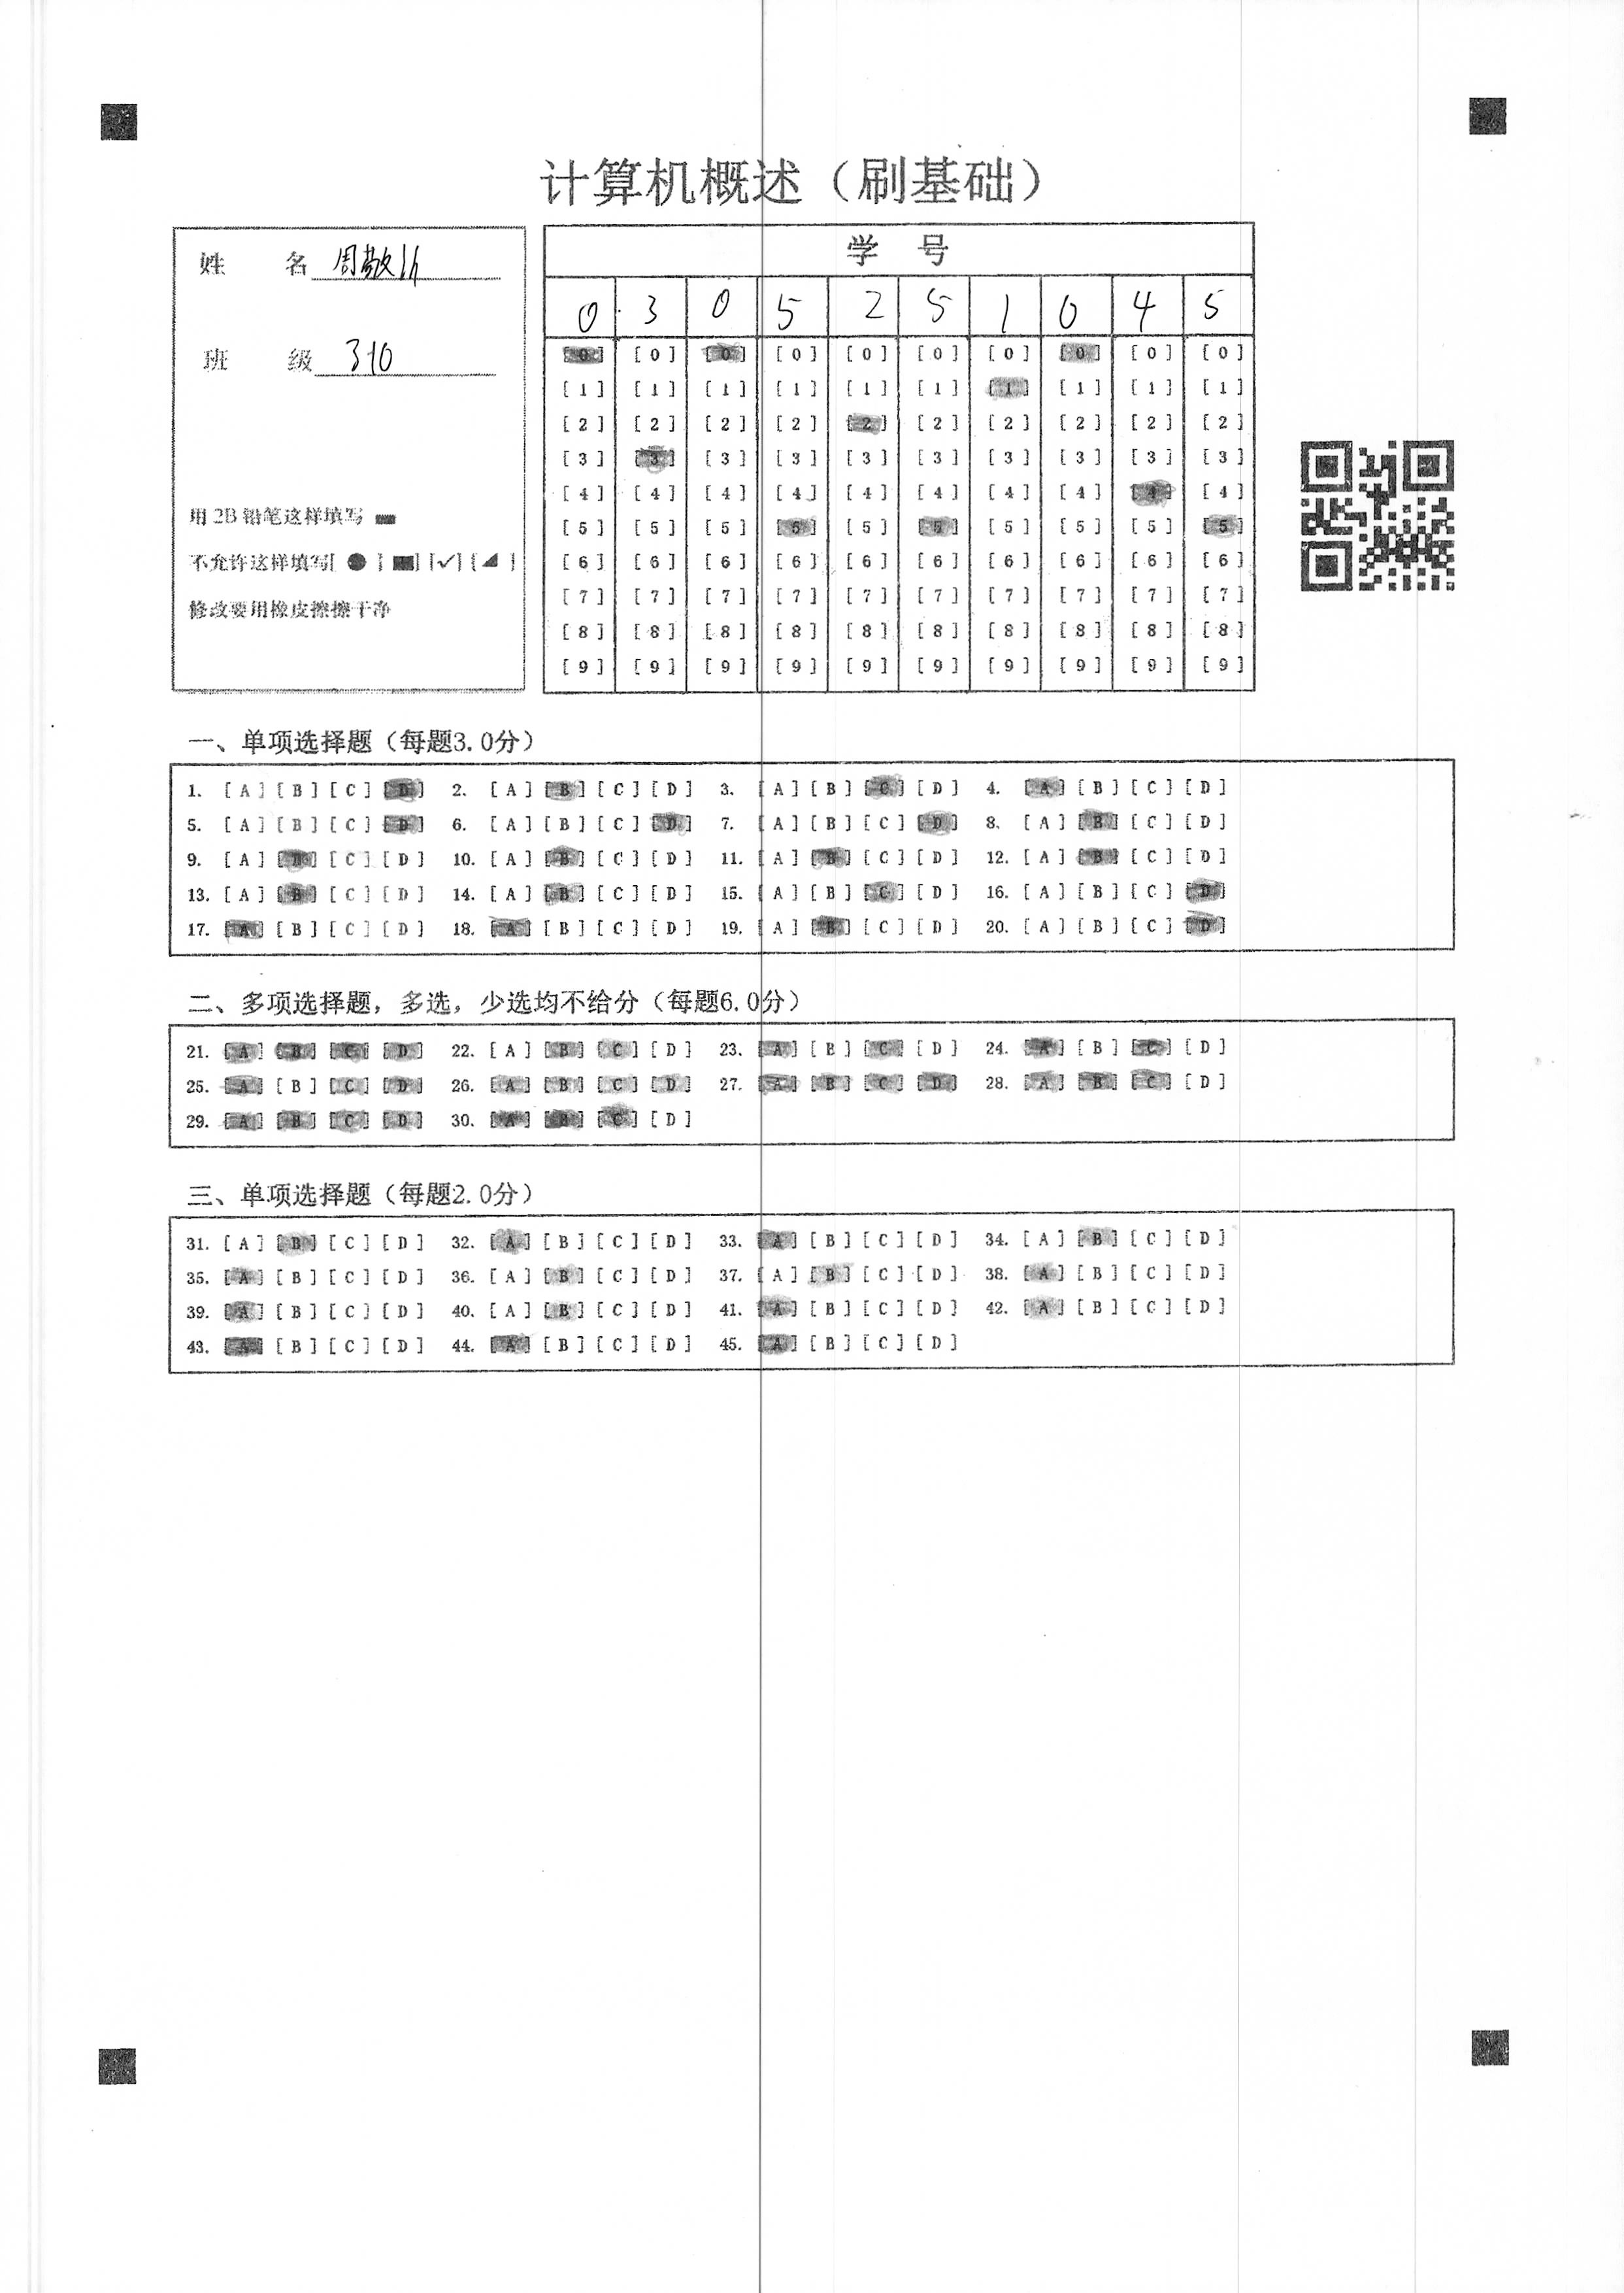 计算机概述（刷基础）
姓 名 周敬
班 级 310
用 2B 铅笔这样填写
不允许这样填写[ ● ] [■] [✓] [◢ ]
修改要用橡皮擦擦干净
学 号
0 3 0 5 2 5 1 0 4 5
[0] [0] [0] [0] [0] [0] [0] [0] [0] [0]
[1] [1] [1] [1] [1] [1] [1] [1] [1] [1]
[2] [2] [2] [2] [2] [2] [2] [2] [2] [2]
[3] [3] [3] [3] [3] [3] [3] [3] [3] [3]
[4] [4] [4] [4] [4] [4] [4] [4] [4] [4]
[5] [5] [5] [5] [5] [5] [5] [5] [5] [5]
[6] [6] [6] [6] [6] [6] [6] [6] [6] [6]
[7] [7] [7] [7] [7] [7] [7] [7] [7] [7]
[8] [8] [8] [8] [8] [8] [8] [8] [8] [8]
[9] [9] [9] [9] [9] [9] [9] [9] [9] [9]
一、单项选择题（每题3.0分）
1. [A] [B] [C] [D] 2. [A] [B] [C] [D] 3. [A] [B] [C] [D] 4. [A] [B] [C] [D]
5. [A] [B] [C] [D] 6. [A] [B] [C] [D] 7. [A] [B] [C] [D] 8. [A] [B] [C] [D]
9. [A] [B] [C] [D] 10. [A] [B] [C] [D] 11. [A] [B] [C] [D] 12. [A] [B] [C] [D]
13. [A] [B] [C] [D] 14. [A] [B] [C] [D] 15. [A] [B] [C] [D] 16. [A] [B] [C] [D]
17. [A] [B] [C] [D] 18. [A] [B] [C] [D] 19. [A] [B] [C] [D] 20. [A] [B] [C] [D]
二、多项选择题，多选，少选均不给分（每题6.0分）
21. [A] [B] [C] [D] 22. [A] [B] [C] [D] 23. [A] [B] [C] [D] 24. [A] [B] [C] [D]
25. [A] [B] [C] [D] 26. [A] [B] [C] [D] 27. [A] [B] [C] [D] 28. [A] [B] [C] [D]
29. [A] [B] [C] [D] 30. [A] [B] [C] [D]
三、单项选择题（每题2.0分）
31. [A] [B] [C] [D] 32. [A] [B] [C] [D] 33. [A] [B] [C] [D] 34. [A] [B] [C] [D]
35. [A] [B] [C] [D] 36. [A] [B] [C] [D] 37. [A] [B] [C] [D] 38. [A] [B] [C] [D]
39. [A] [B] [C] [D] 40. [A] [B] [C] [D] 41. [A] [B] [C] [D] 42. [A] [B] [C] [D]
43. [A] [B] [C] [D] 44. [A] [B] [C] [D] 45. [A] [B] [C] [D]